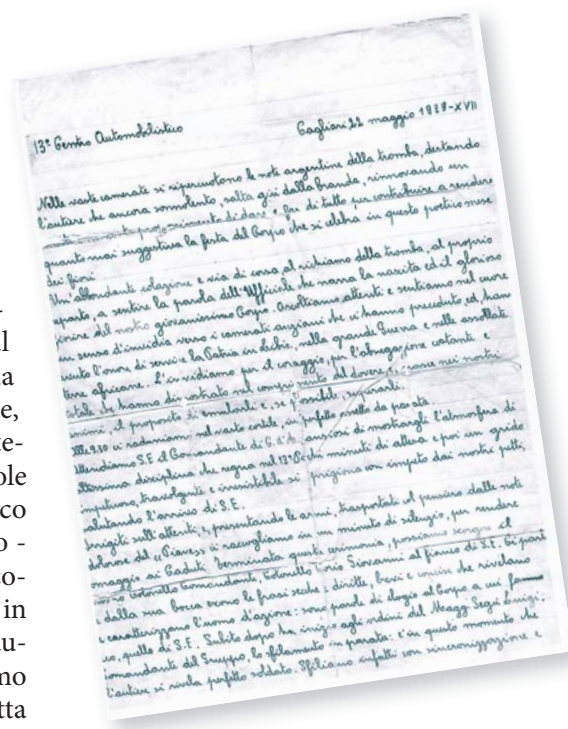 -
al
da
e,
te-
ole
co
o -
co-
in
au-
mo
tta
13° Centro Automobilistico
Cagliari, 22 maggio 1939-XVII
Nelle vaste camerate si ripercuotono le note argentine della tromba, destando
l'autiere che ancora sonnolento, salta giù dalla branda, rinnovando un
proponimento di dare fin di tutto per contribuire a rendere
quanto mai suggestiva la festa del Corpo che si celebra in questo poetico mese
dei fiori.
Un'abbondante colazione e via di corsa, al richiamo della tromba, al proprio
reparto, a sentire la parola dell'Ufficiale che narra la nascita ed il glorioso
del nostro giovanissimo Corpo. Ascoltiamo attenti e sentiamo nel cuore
un senso d'invidia verso i camerati anziani che ci hanno preceduto ed, hanno
avuto l'onore di servire la Patria in Libia, nella grande Guerra e nelle assolate
terre africane. L'invidiamo per il coraggio, per l'abnegazione costante e
totale che hanno dimostrato nel compimento del dovere, e nasce nei nostri
animi il proposito di emularli e, se possibile, superarli.
Alle 9.30 ci raduniamo nel vasto cortile, in perfetto assetto da parata.
Attendiamo S.E. il Comandante di C. d'A. ansiosi di mostrargli l'atmosfera di
altissima disciplina che regna nel 13° Pochi minuti di attesa e poi un grido
impetuoso, travolgente e invincibile si sprigiona con impeto dai nostri petti,
salutando l'arrivo di S.E.
Irrigiditi sull'attenti, presentando le armi, trasportati il pensiero dalle note
dolorose del "Piave", ci raccogliamo in un minuto di silenzio, per rendere
omaggio ai Caduti. Terminata questa cerimonia, possiamo scorgere il
nostro Colonnello Comandante, Colonnello Giovanni al fianco di S.E.
e dalla sua bocca escono le frasi secche, diritte, brevi e concise che rivelano
e caratterizzano l'uomo d'azione: sono parole di elogio al Corpo a cui fanno
quelle di S.E. Subito dopo ha inizio agli ordini del Magg. Sega Luigi,
Comandante del Gruppo, lo sfilamento in parata: è in questo momento che
l'autiere si rivela perfetto soldato. Sfiliamo infatti con sincronizzazione e